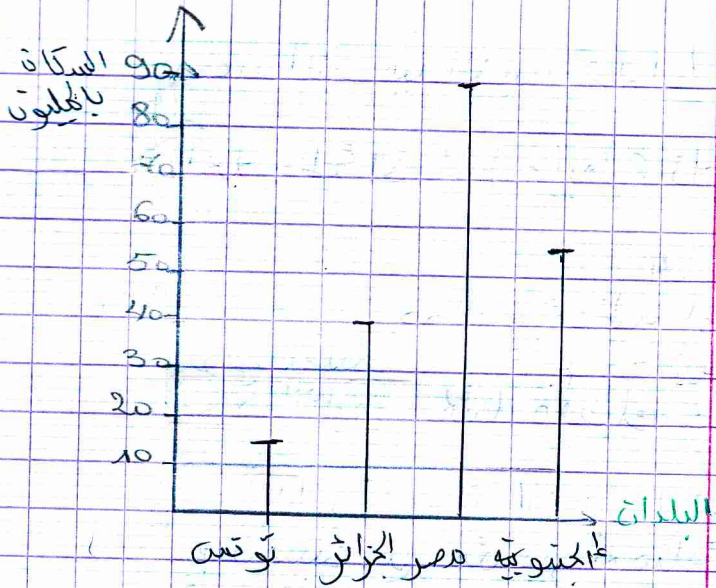 السكان
بالمليون
90
80
70
60
50
40
30
20
10
البلدان
تونس الجزائر مصر إ.الجنوبية